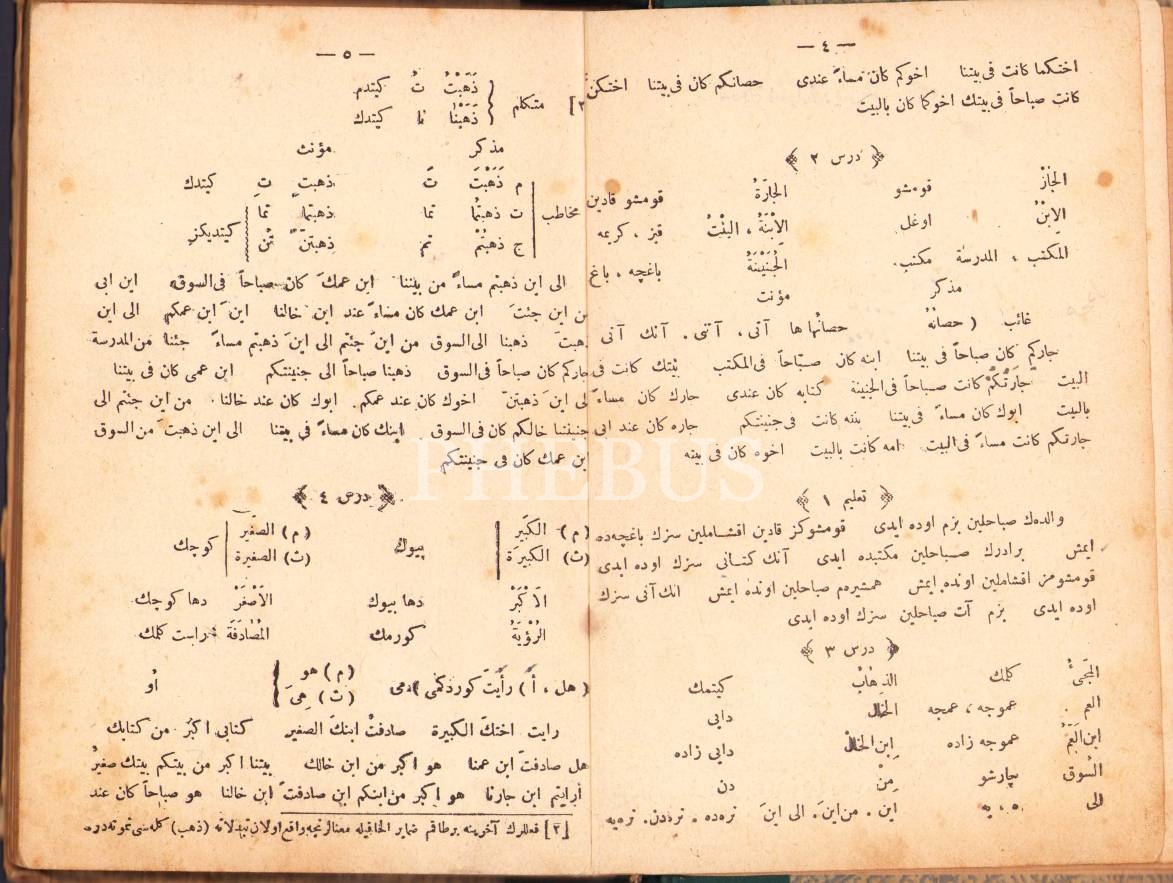 — ٤ —
اختكما كانت فى بيتنا اخوكم كان مساءً عندى حصانكم كان فى بيتنا اختكن
كانت صباحاً فى بيتك اخوكما كان بالبيت
﴿ درس ٢ ﴾
الجَارْ قومشو الجَارَةُ قومشو قادين
الاِبْنُ اوغل الاِبْنَةُ ، البِنْتُ قيز ، كريمه
المكتب ، المدرسة مكتب. الجُنَيْنَةُ باغچه ، باغ
مذكر مؤنث
غائب ( حصانُهُ حصانُها ها آتى ، آتنى . آنك آتى
جاركم كان صباحاً فى بيتنا ابنه كان صباحاً فى المكتب بنتك كانت فى
البيت جَارَتُكُمْ كانت صباحاً فى الجنينة كتابه كان عندى جارك كان مساءً
بالبيت ابوك كان مساءً فى بيتنا بنته كانت فى جنينتكم جاره كان عند ابى
جارتكم كانت مساءً فى البيت امه كانت بالبيت اخوه كان فى بيته
﴿ تعليم ١ ﴾
والده‌ك صباحلين بزم اوده ايدى قومشوكز قادين اقشاملين سزك باغچه‌ده
ايمش برادرك صباحلين مكتبده ايدى آنك كتابى سزك اوده ايدى
قومشومز اقشاملين اونده ايمش همشيره‌م صباحلين اونده ايمش انك آتى سزك
اوده ايدى بزم آت صباحلين سزك اوده ايدى
﴿ درس ٣ ﴾
المجَىْءُ كلمك الذِهَابْ كيتمك
العم . عموجه ، عمجه الخال دايى
ابن العَمُّ عموجه زاده اِبن الخالْ دايى زاده
السُوق چارشو مِنْ دن
الى ه ، يه اين . من اينَ . الى اينَ نره‌ده . نره‌دن . نره‌يه
— ٥ —
[٣ متكلم ذَهَبْتُ تُ كيتدم
ذَهَبْنَا نا كيتدك
مذكر مؤنث
مخاطب م ذَهَبْتَ تَ ذهبتِ تِ كيتدك
ت ذهبتُما تما ذهبتما تما كيتديكز
ج ذهبتُمْ تم ذهبتنّ تُنّ
الى اين ذهبتم مساءً من بيتنا ابن عمك كان صباحاً فى السوق اين ابى
من اين جئتَ ابن عمك كان مساءً عند ابن خالنا اين ابن عمكم الى اين
ذهبتَ ذهبنا الى السوق من اين جئتم الى اين ذهبتم مساءً جئنا من المدرسة
جاركم كان صباحاً فى السوق ذهبنا صباحاً الى جنينتكم ابن عمى كان فى بيتنا
الى اين ذهبتنّ اخوك كان عند عمكم. ابوك كان عند خالنا. من اين جئتم الى
جنينتنا خالكم كان فى السوق ابنك كان مساءً فى بيتنا الى اين ذهبت من السوق
ابن عمك كان فى جنينتكم
PHEBUS
﴿ درس ٤ ﴾
(م) الكبّير بيوك (م) الصغّير كوچك
(ث) الكبيرَة (ث) الصغيرة
الاَكْبَرْ دها بيوك الاَصْغَرْ دها كوچك
الرُؤْيَةُ كورمك المُصَادَفَة راست كلمك
( هل ، أ ) رأيتَ كوردكمى ) مى (م) هو اُو
(ث) هِىَ
رايت اختكَ الكبيرة صادفتُ ابنكَ الصغير كتابى اكبرُ من كتابك
هل صادفتَ ابن عمنا هو اكبر من ابن خالك بيتنا اكبر من بيتكم بيتك صغيرُ
أرايتم ابن جارنا هو اكبر من ابنكم ابن صادفت ابن خالنا هو صباحاً كان عند
[٣] فعللرك آخرينه برطاقم ضماير الحاقيله معنالرنجه واقع اولان تبدلاته (ذهب) كلمه‌سى نمونه‌در